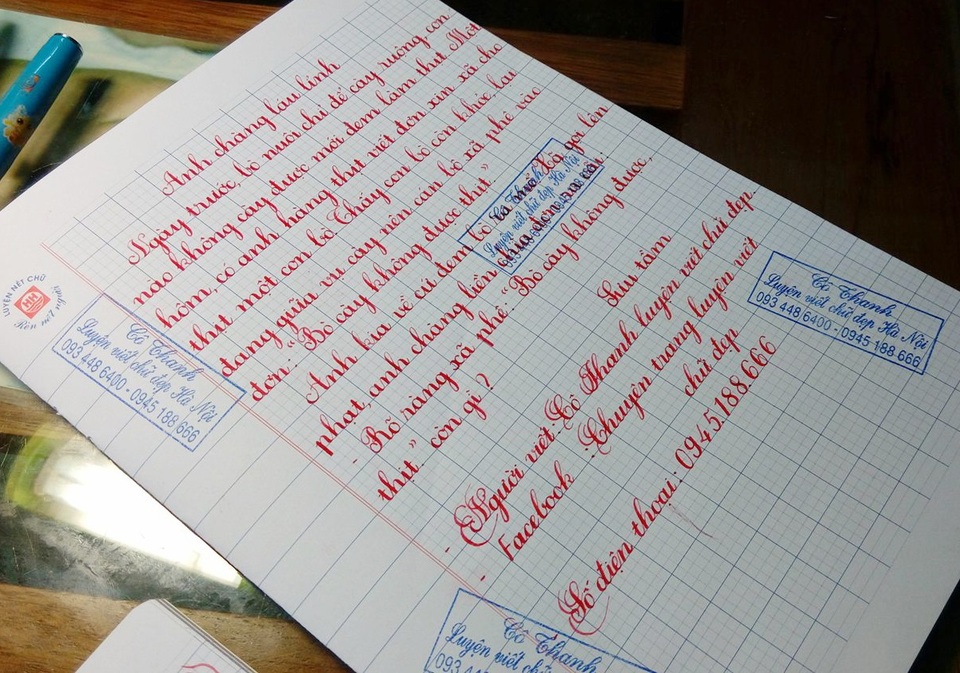 Anh chàng láu lỉnh
Ngày trước, bò nuôi chỉ để cày ruộng, con
nào không cày được mới đem làm thịt. Một
hôm, có anh hàng thịt viết đơn xin xã cho
thịt một con bò. Thấy con bò còn khỏe, lại
đang giữa vụ cày nên cán bộ xã phê vào
đơn: "Bò cày không được thịt"
Anh ta về cứ đem bò ra thịt. Xã gọi lên
phạt, anh chàng liền đưa đơn ra cãi
- Rõ ràng xã phê: "Bò cày không được,
thịt" còn gì?
Sưu tầm
- Người viết: Cô Thanh luyện viết chữ đẹp.
- Facebook: Chuyên trang luyện viết
chữ đẹp
Số điện thoại: 0945.188.666
LUYỆN NÉT CHỮ
Rèn nết người
Cô Thanh
Luyện viết chữ đẹp Hà Nội
093 448 6400 - 0945 188 666
Cô Thanh
Luyện viết chữ đẹp Hà Nội
Cô Thanh
Luyện viết chữ đẹp Hà Nội
093 448 6400 - 0945 188 666
Cô Thanh
Luyện viết chữ
093 4